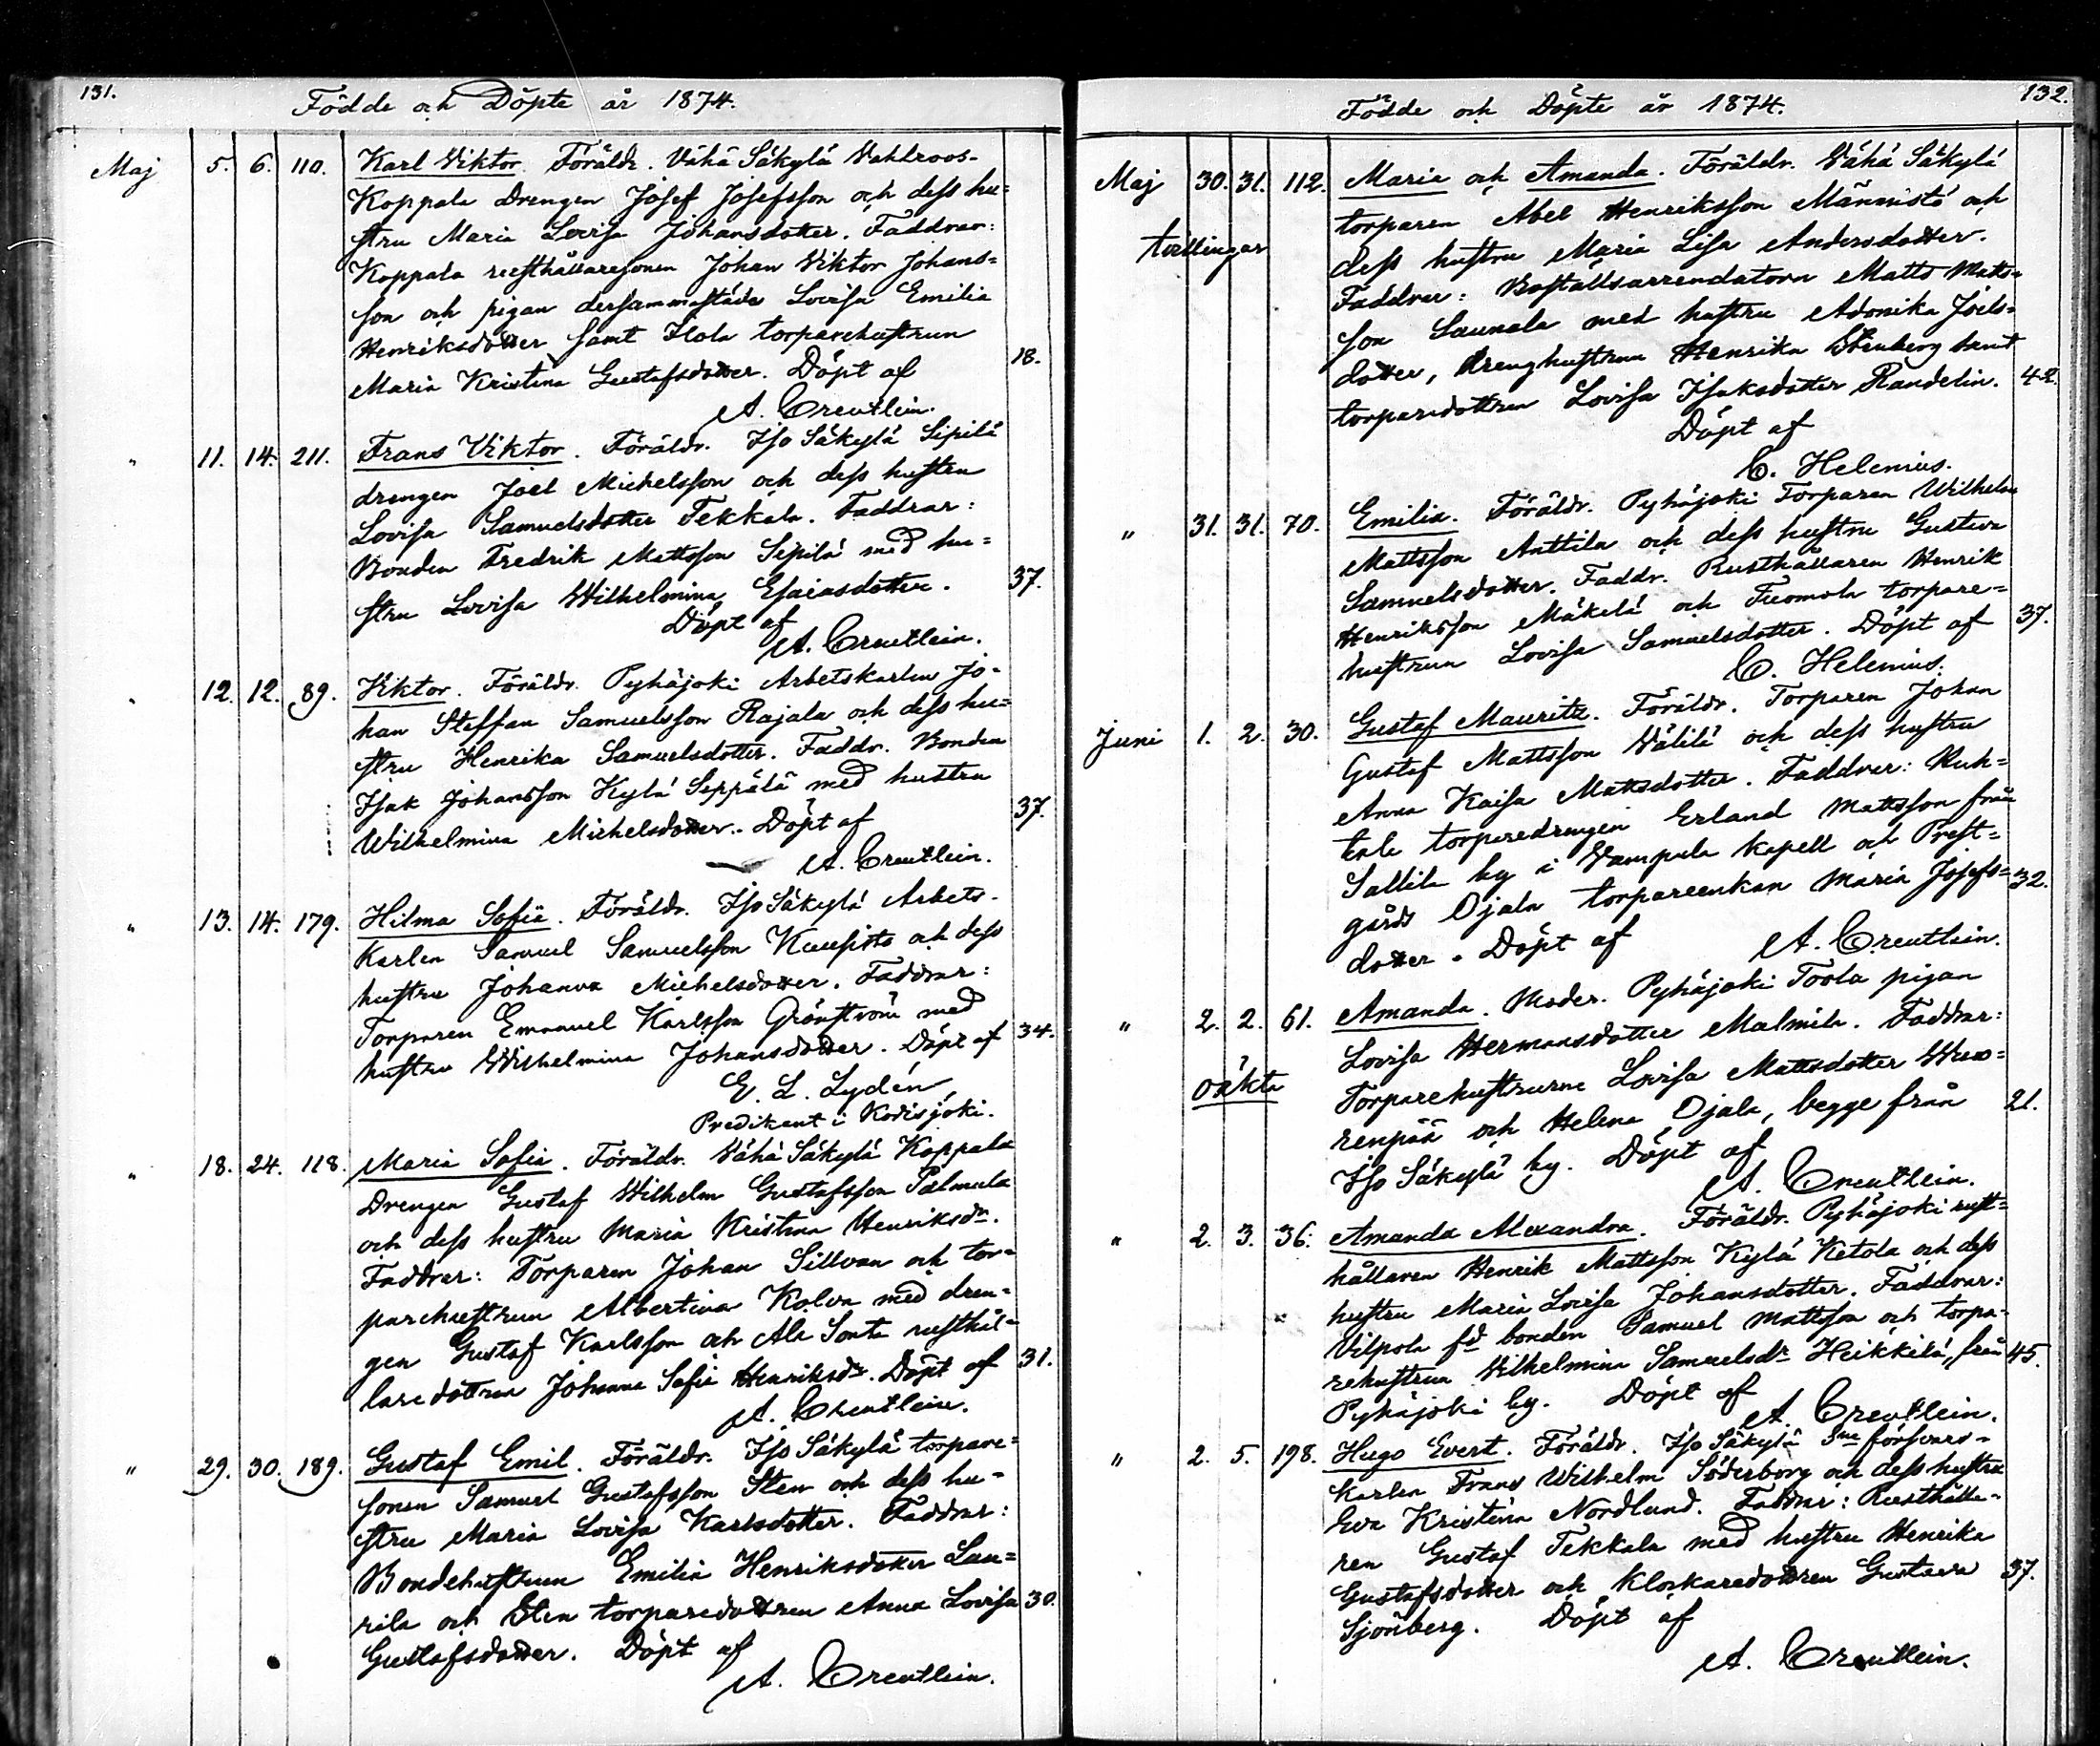 131.
Födde och Döpte år 1874.
Maj 5. 6. 110. Karl Viktor. Föräldr. Vähä Säkylä Vahlroos-
Koppala Drengen Josef Josefsson och dess hu=
stru Maria Lovisa Johansdotter. Faddrar:
Koppala rusthållaresonen Johan Viktor Johans=
son och pigan dersammastädes Lovisa Emilia
Henriksdotter samt Ilola torparehustrun
Maria Kristina Gustafsdotter. Döpt af 18.
A. Creutlein.
" 11. 14. 211. Frans Viktor. Föräldr. Iso Säkylä Sipilä
drengen Joel Michelsson och dess hustru
Lovisa Samuelsdotter Tekkala. Faddrar:
Bonden Fredrik Mattsson Sipilä med hu=
stru Lovisa Wilhelmina Esaiasdotter. 37.
Döpt af
A. Creutlein.
" 12. 12. 89. Viktor. Föräldr. Pyhäjoki Arbetskarlen Jo-
han Steffan Samuelsson Rajala och dess hu=
stru Henrika Samuelsdotter. Faddr. Bonden
Isak Johansson Kylä Seppälä med hustru
Wilhelmina Michelsdotter. Döpt af 37.
A. Creutlein.
" 13. 14. 179. Hilma Sofia. Föräldr. Iso Säkylä Arbets-
karlen Samuel Samuelsson Kuusisto och dess
hustru Johanna Michelsdotter. Faddrar:
Torparen Emanuel Karlsson Grönström med
hustru Wilhelmina Johansdotter. Döpt af 34.
E. L. Lydén,
Predikant i Kodisjoki.
" 18. 24. 118. Maria Sofia. Föräldr. Vähä Säkylä Koppala
Drengen Gustaf Wilhelm Gustafsson Palmula
och dess hustru Maria Kristina Henriksdr.
Faddrar: Torparen Johan Sillvan och tor-
parehustrun Albertina Kolva med dren-
gen Gustaf Karlsson och Ale Sonta rusthål-
laredottren Johanna Sofia Henriksdr. Döpt af 31.
A. Creutlein.
" 29. 30. 189. Gustaf Emil. Föräldr. Iso Säkylä torpare=
sonen Samuel Gustafsson Sten och dess hu-
stru Maria Lovisa Karlsdotter. Faddrar:
Bondehustrun Emilia Henriksdotter Lau=
rila och Sten torparedottren Anna Lovisa 30.
Gustafsdotter. Döpt af
A. Creutlein.
132.
Födde och Döpte år 1874.
Maj 30. 31. 112. Maria och Amanda. Föräldr. Vähä Säkylä
tvillingar torparen Abel Henriksson Männistö och
dess hustru Maria Lisa Andersdotter.
Faddrar: Boställsarrendatorn Matts Matts=
son Saunala med hustru Adonika Joels-
dotter, drenghustrun Henrika Stenberg samt
torparedottren Lovisa Isaksdotter Randelin. 42.
Döpt af
C. Helenius.
" 31. 31. 70. Emilia. Föräldr. Pyhäjoki Torparen Wilhelm
Mattsson Anttila och dess hustru Gustava
Samuelsdotter. Faddr. Rusthållaren Henrik
Henriksson Mäkelä och Tuomola torpare=
hustrun Lovisa Samuelsdotter. Döpt af 37.
C. Helenius.
Juni 1. 2. 30. Gustaf Mauritz. Föräldr. Torparen Johan
Gustaf Mattsson Välilä och dess hustru
Anna Kaisa Mattsdotter. Faddrar:
torparedrengen Erland Mattsson från
Sallila by i Vampula kapell och Prest=
gårds Ojala torpareenkan Maria Josefs= 32.
dotter. Döpt af
A. Creutlein.
" 2. 2. 61. Amanda. Moder. Pyhäjoki Toola pigan
oäkta Lovisa Hermansdotter Malmila. Faddrar:
Torparehustrurne Lovisa Mattsdotter Wuo=
renpää och Helena Ojala, begge från 21.
Iso Säkylä by. Döpt af
A. Creutlein.
" 2. 3. 36. Amanda Alexandra. Föräldr. Pyhäjoki rust=
hållaren Henrik Mattsson Kylä Ketola och dess
hustru Maria Lovisa Johansdotter. Faddrar:
Vilpola fd bonden Samuel Mattsson och torpa-
rehustrun Wilhelmina Samuelsdr Heikkilä, från 45.
Pyhäjoki by. Döpt af
A. Creutlein.
" 2. 5. 198. Hugo Evert. Föräldr. Iso Säkylä försvars-
karlen Frans Wilhelm Söderborg och dess hustru
Eva Kristina Nordlund. Faddrar: Rusthålla-
ren Gustaf Tekkala med hustru Henrika
Gustafsdotter och Klockaredottren Gustava 37.
Sjöberg. Döpt af
A. Creutlein.